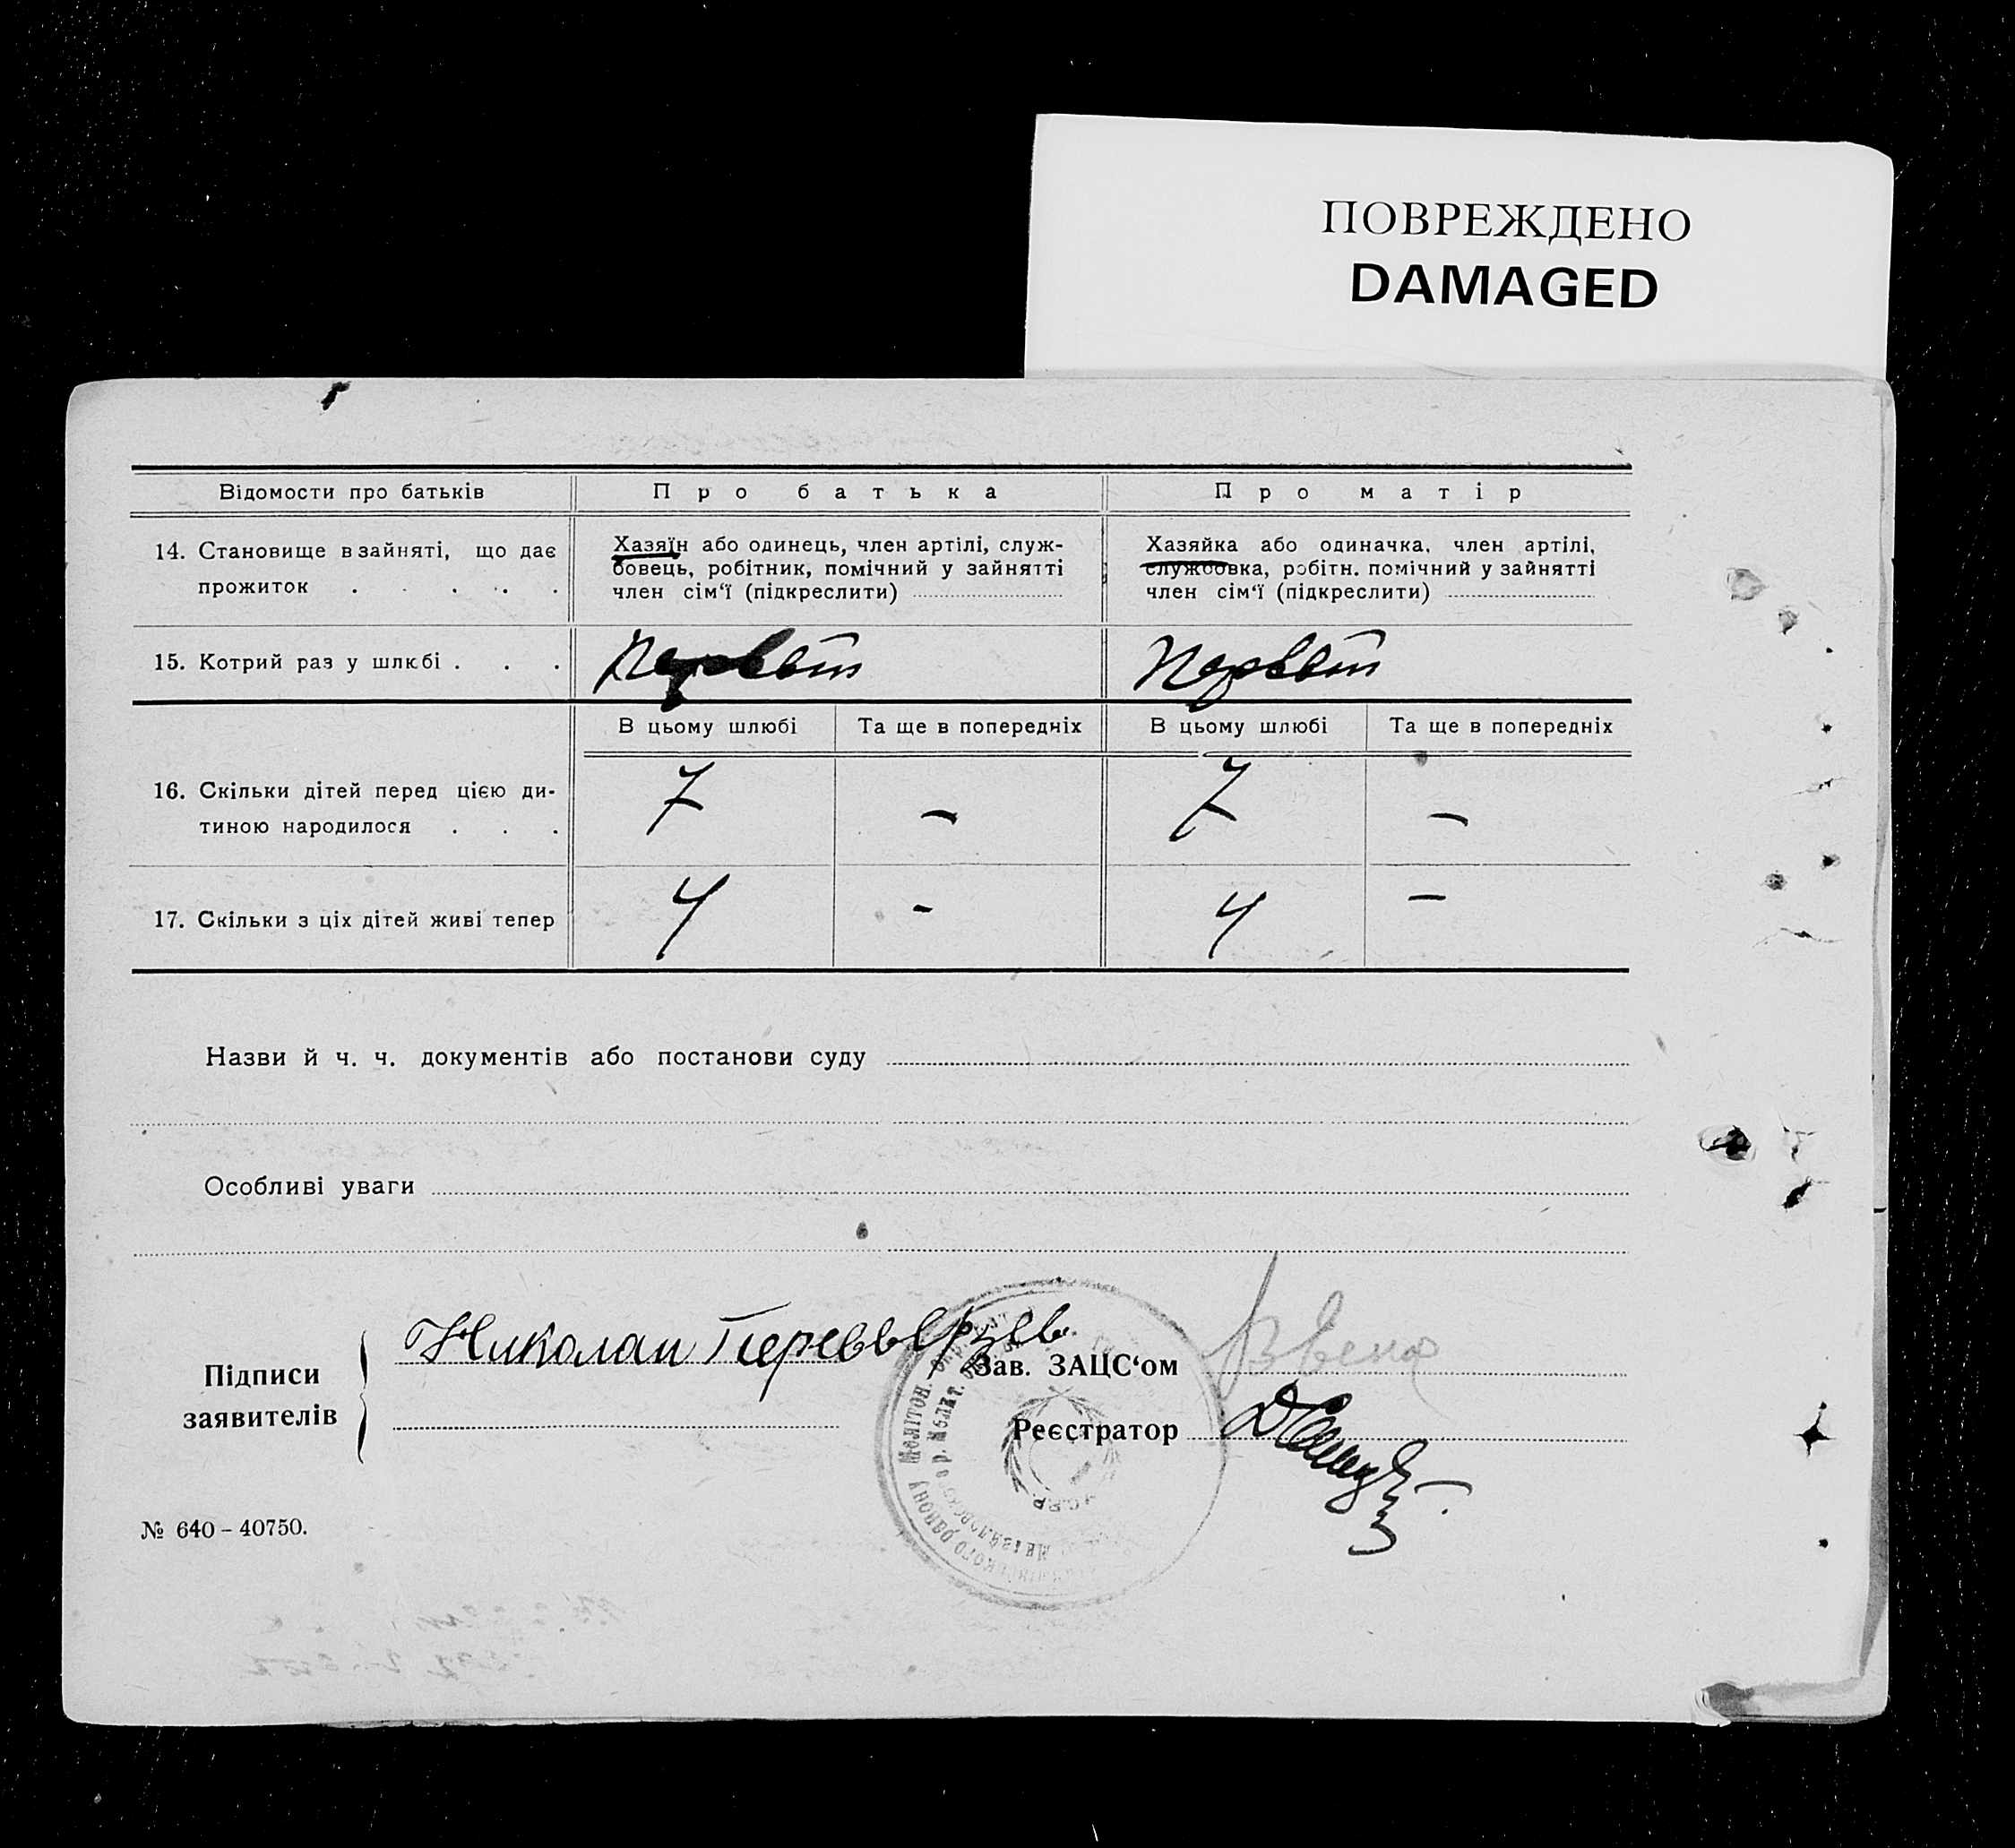 ПОВРЕЖДЕНО
DAMAGED
Відомости про батьків
Про батька
Про матір
14. Становище в зайняті, що дає
прожиток . . . . .
Хазяїн або одинець, член артілі, служ-
бовець, робітник, помічний у зайнятті
член сім‘ї (підкреслити)
Хазяйка або одиначка, член артілі,
службовка, робітн. помічний у зайнятті
член сім‘ї (підкреслити)
15. Котрий раз у шлюбі . . .
В цьому шлюбі
Та ще в попередніх
В цьому шлюбі
Та ще в попередніх
16. Скільки дітей перед цією ди-
тиною народилося . . .
7
–
7
–
17. Скільки з ціх дітей живі тепер
4
-
4
–
Назви й ч. ч. документів або постанови суду
Особливі уваги
Підписи
заявителів
Николай
Зав. ЗАЦС‘ом
Реєстратор
№ 640 – 40750.